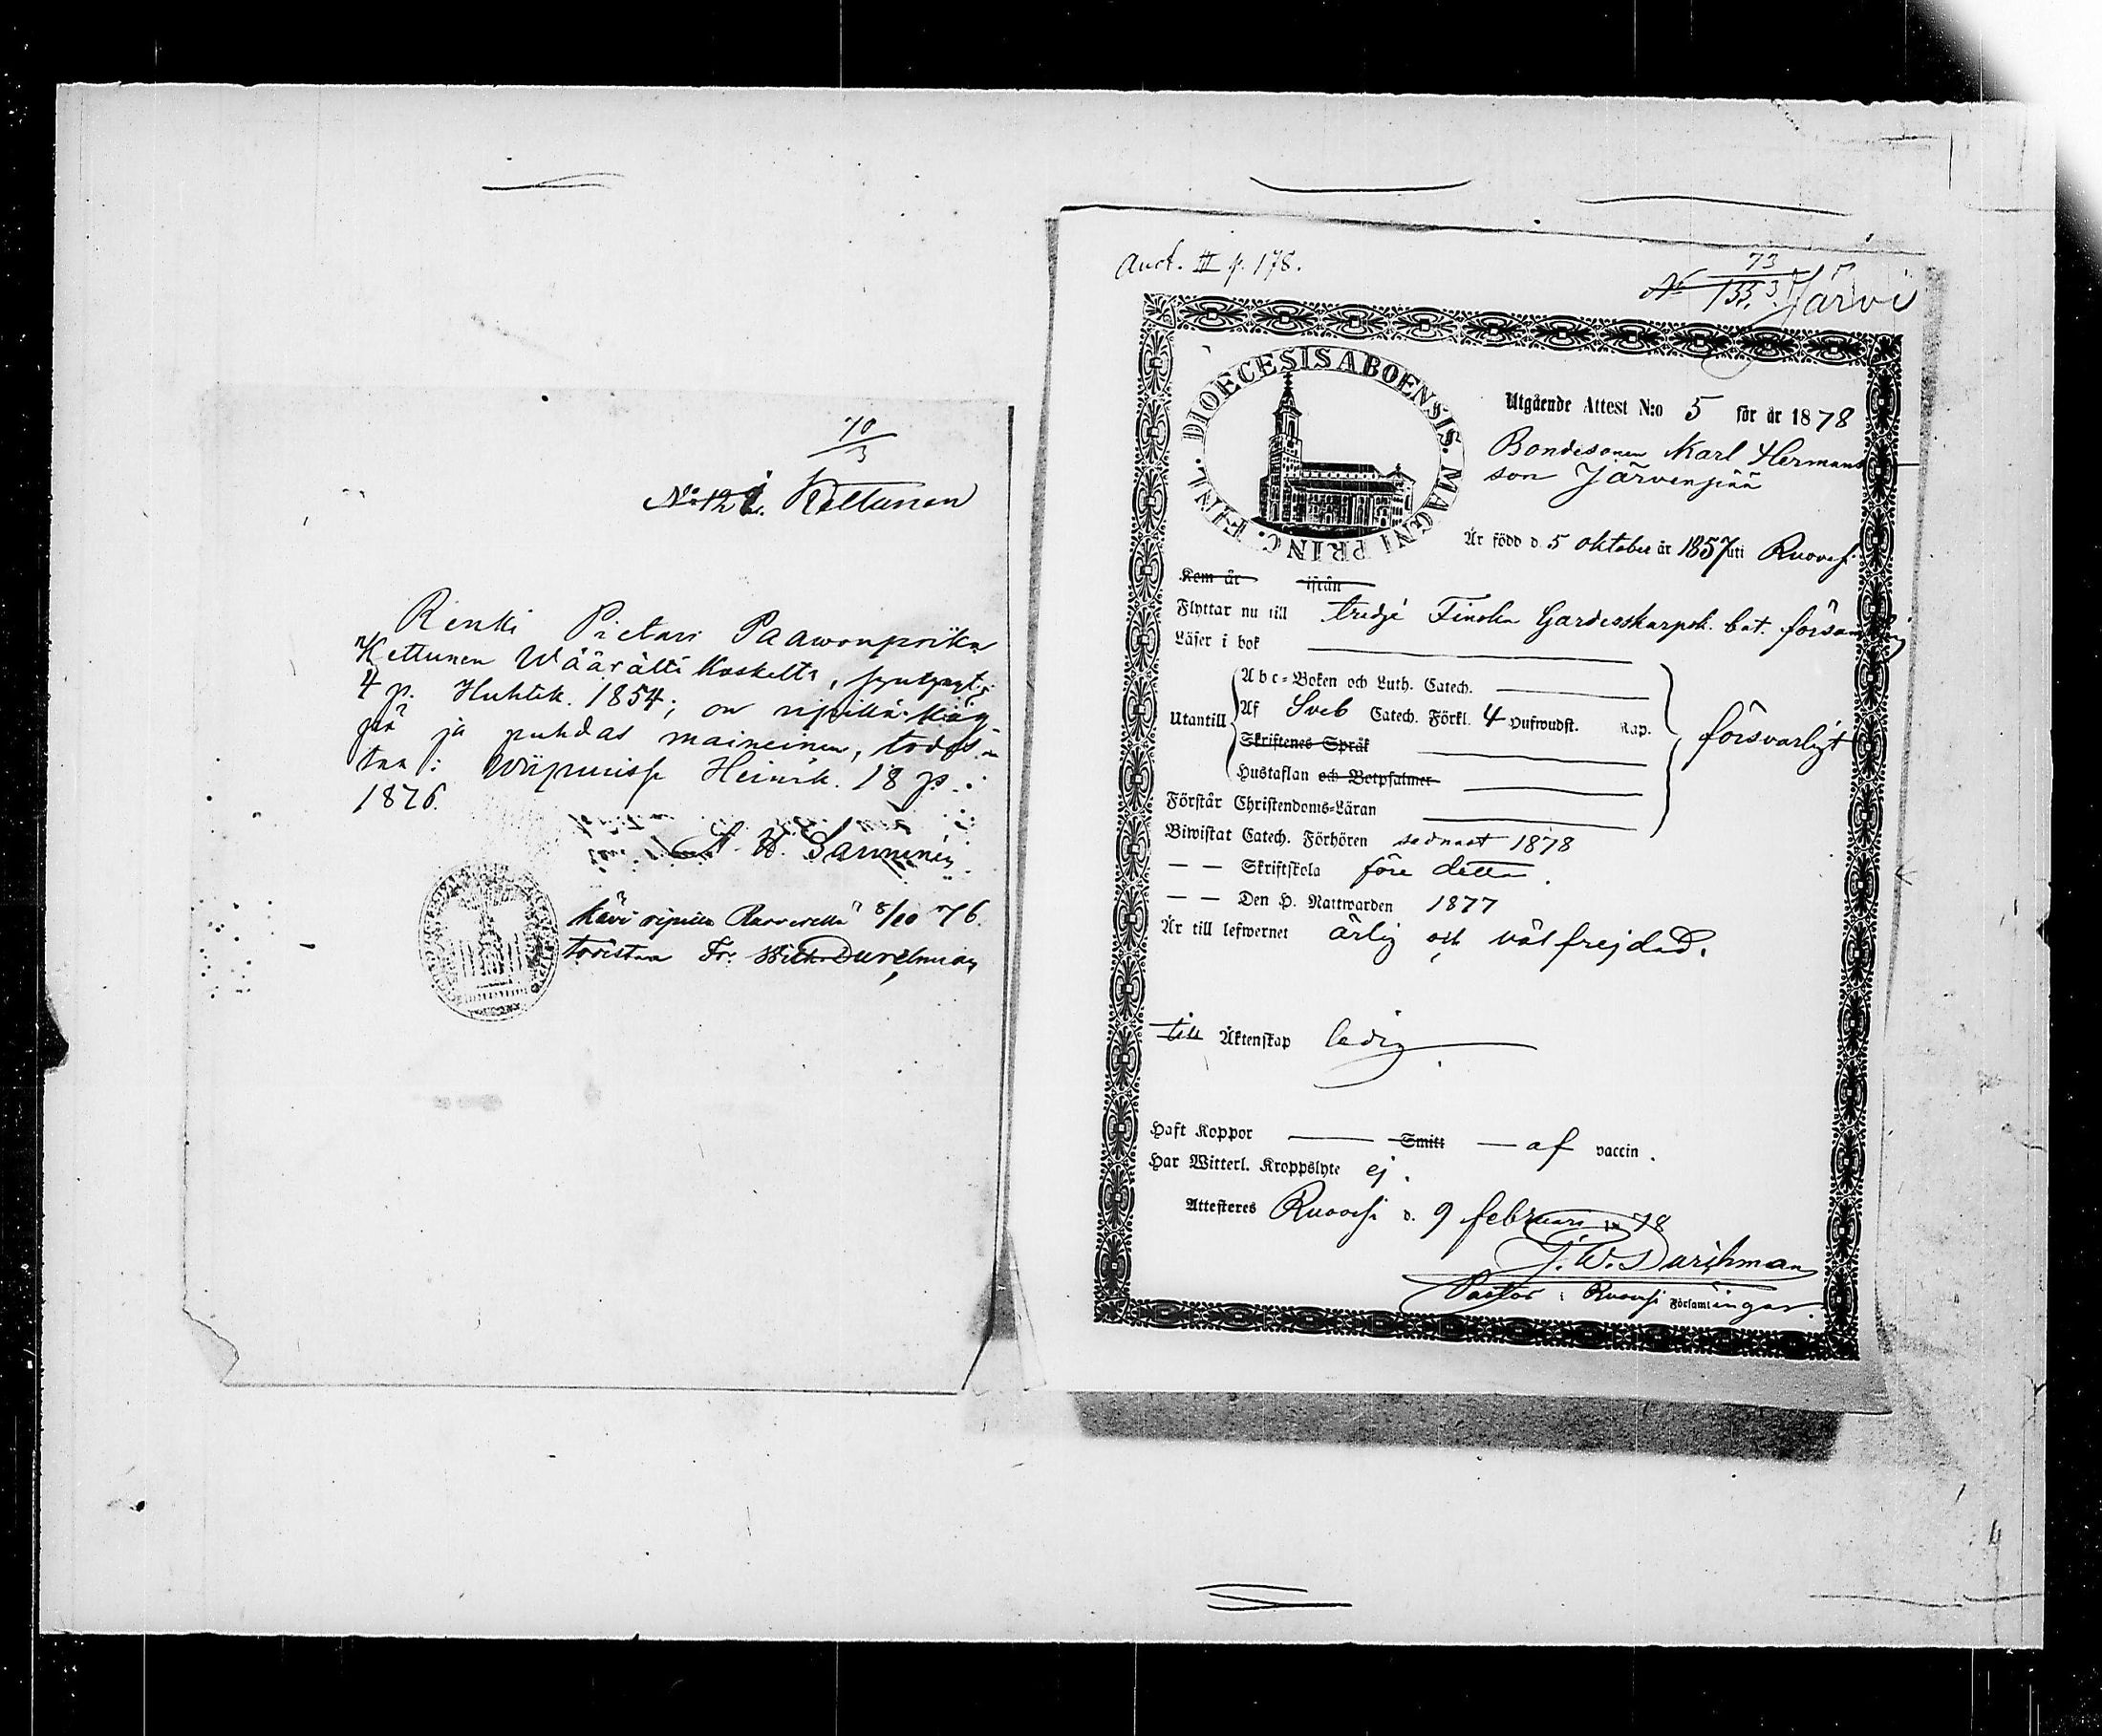 70
3
No 121. Kettunen
Renki Pietari Paawonpoika
Kettunen Wäärältä Koskelta, syntynyt
4 p. Huhtik. 1854; on ripillä käy-
pä ja puhdas maineinen, todis-
taa: Wiipurissa Heinäk. 18 p.
1876.
A. W.
Kävi ripillä Ruovedellä 8/10 76.
todistaa Fr. Wilh. Durchman
Auct. III p. 178.
73
No 133. 3 Järvi
DIOECESIS ABOENSIS. MAGNI PRINC. FINL.
Utgående Attest N:o 5 för år 1878
Bondesonen Karl Hermans
son Järvenpää
Är född d. 5 oktober år 1857 uti Ruovesi
Kom år ifrån
Flyttar nu till tredje Finska Gardesskarpsk. bat. församling
Läser i bok
Abc-Boken och Luth. Catech.
Utantill Af Sveb Catech. Förkl. 4 Hufwudst. Kap. försvarligt
Skriftenes Språk
Hustaflan och Botpsalmer
Förstår Christendoms-Läran
Biwistat Catech. Förhören sednast 1878
— — Skriftskola före detta.
— — Den H. Nattwarden 1877
Är till lefwernet ärlig och välfrejdad.
till Äktenskap ledig
Haft Koppor — Smitt — af vaccin.
Har Witterl. Kroppslyte ej.
Attesteres Ruovesi d. 9 februari 18 78
F. W. Durchman
Pastor i Ruovesi Församlingar.